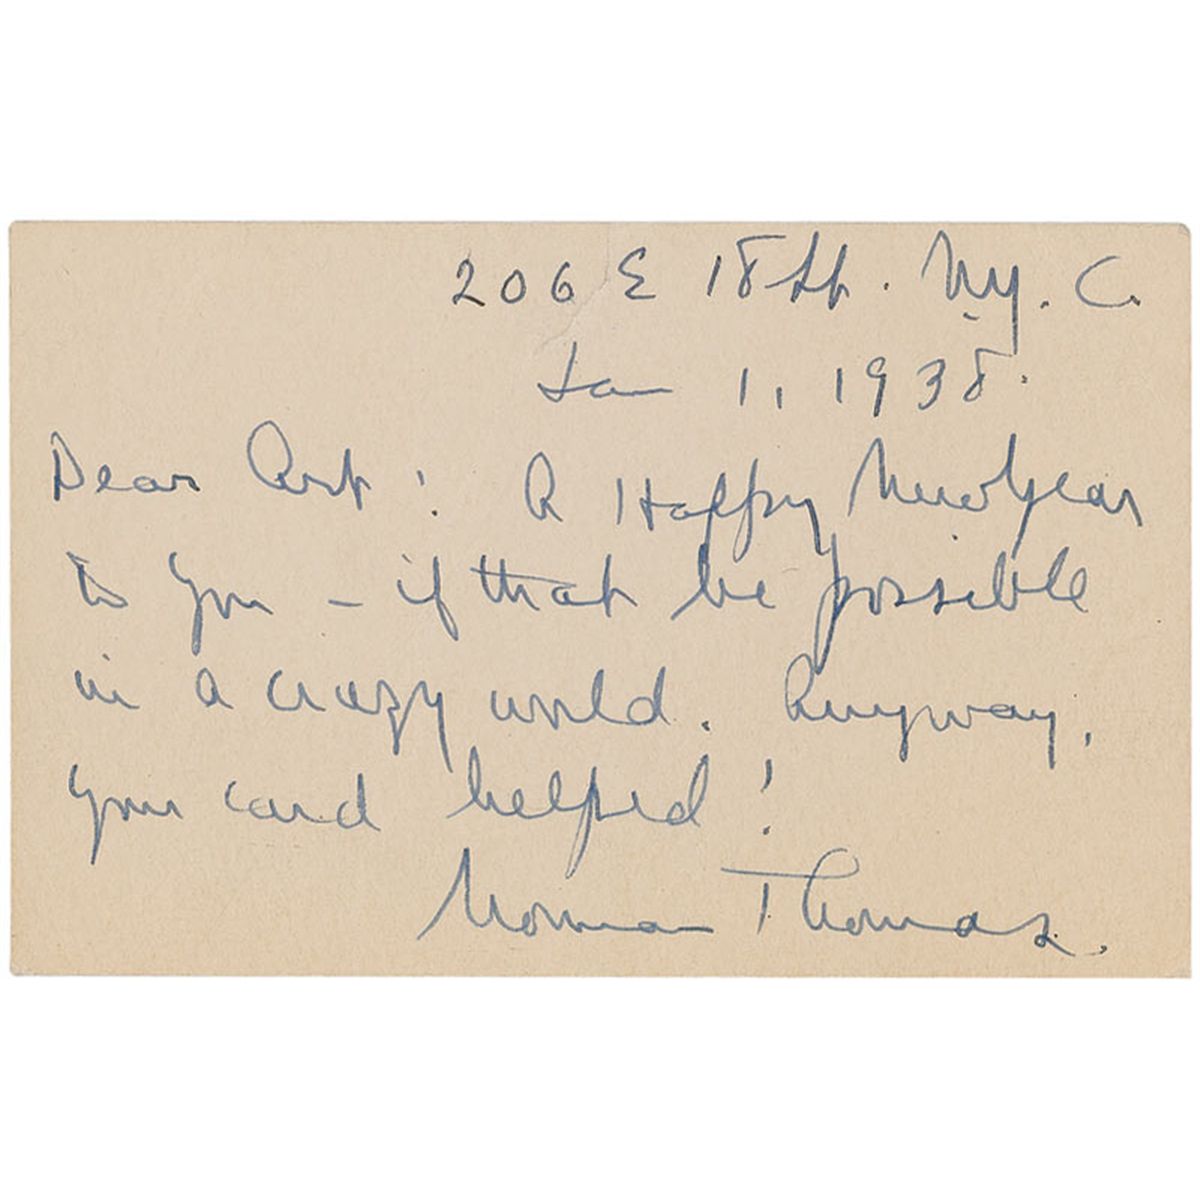 206 E 18th. N.Y.C.
Jan 1, 1938.
Dear Art: A Happy New Year
to you – if that be possible
in a crazy world. Anyway,
your card helped!
Norman Thomas.